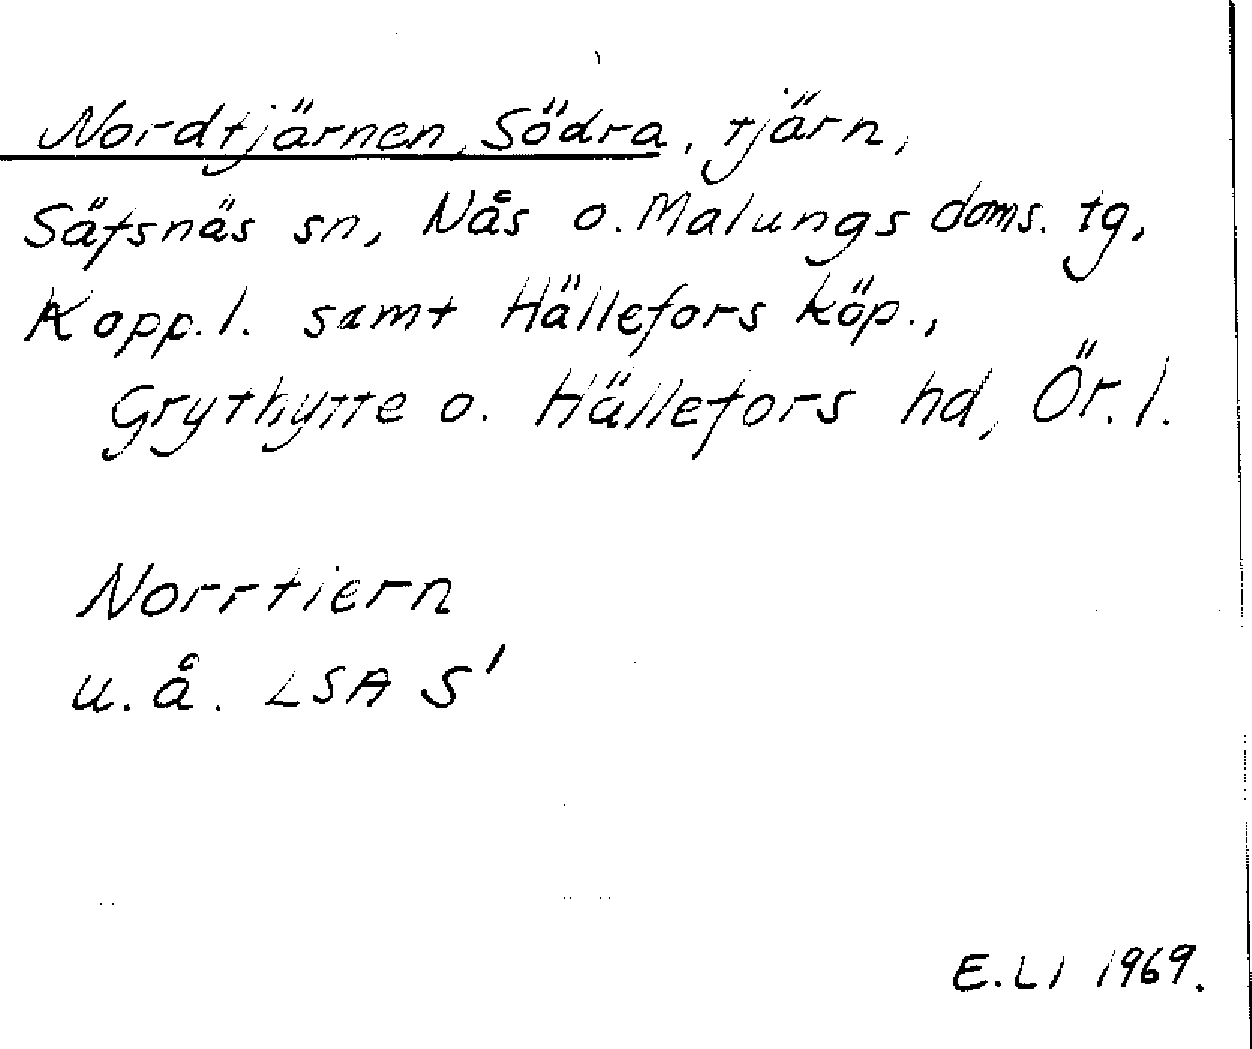 Nordtjärnen, Södra, tjärn,
Säfsnäs sn, Nås o. Malungs doms. tg,
Kopp. l. samt Hällefors köp.,
Grythytte o. Hällefors hd, Ör. l.
Norrtiern
u. å. LSA S'
E. LI 1969.